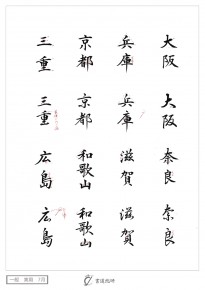 大阪
兵庫
京都
三重
大阪
兵庫
京都
三重
奈良
滋賀
和歌山
広島
奈良
滋賀
和歌山
広島